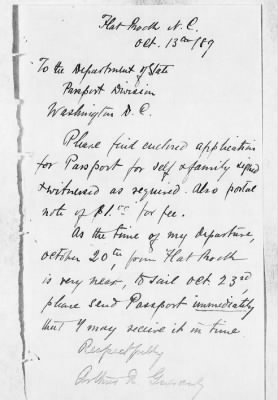 Flat Rock N.C.
Oct. 13th/89
To the Department of State
Passport Division
Washington D.C.
Please find enclosed application
for Passport for self & family signed
& witnessed as required. Also postal
note of $1.00 for fee.
As the time of my departure
October 20th, from Flat Rock
is very near, to sail Oct. 23rd,
please send Passport immediately
that I may receive it in time
Respectfully
Arthur R.